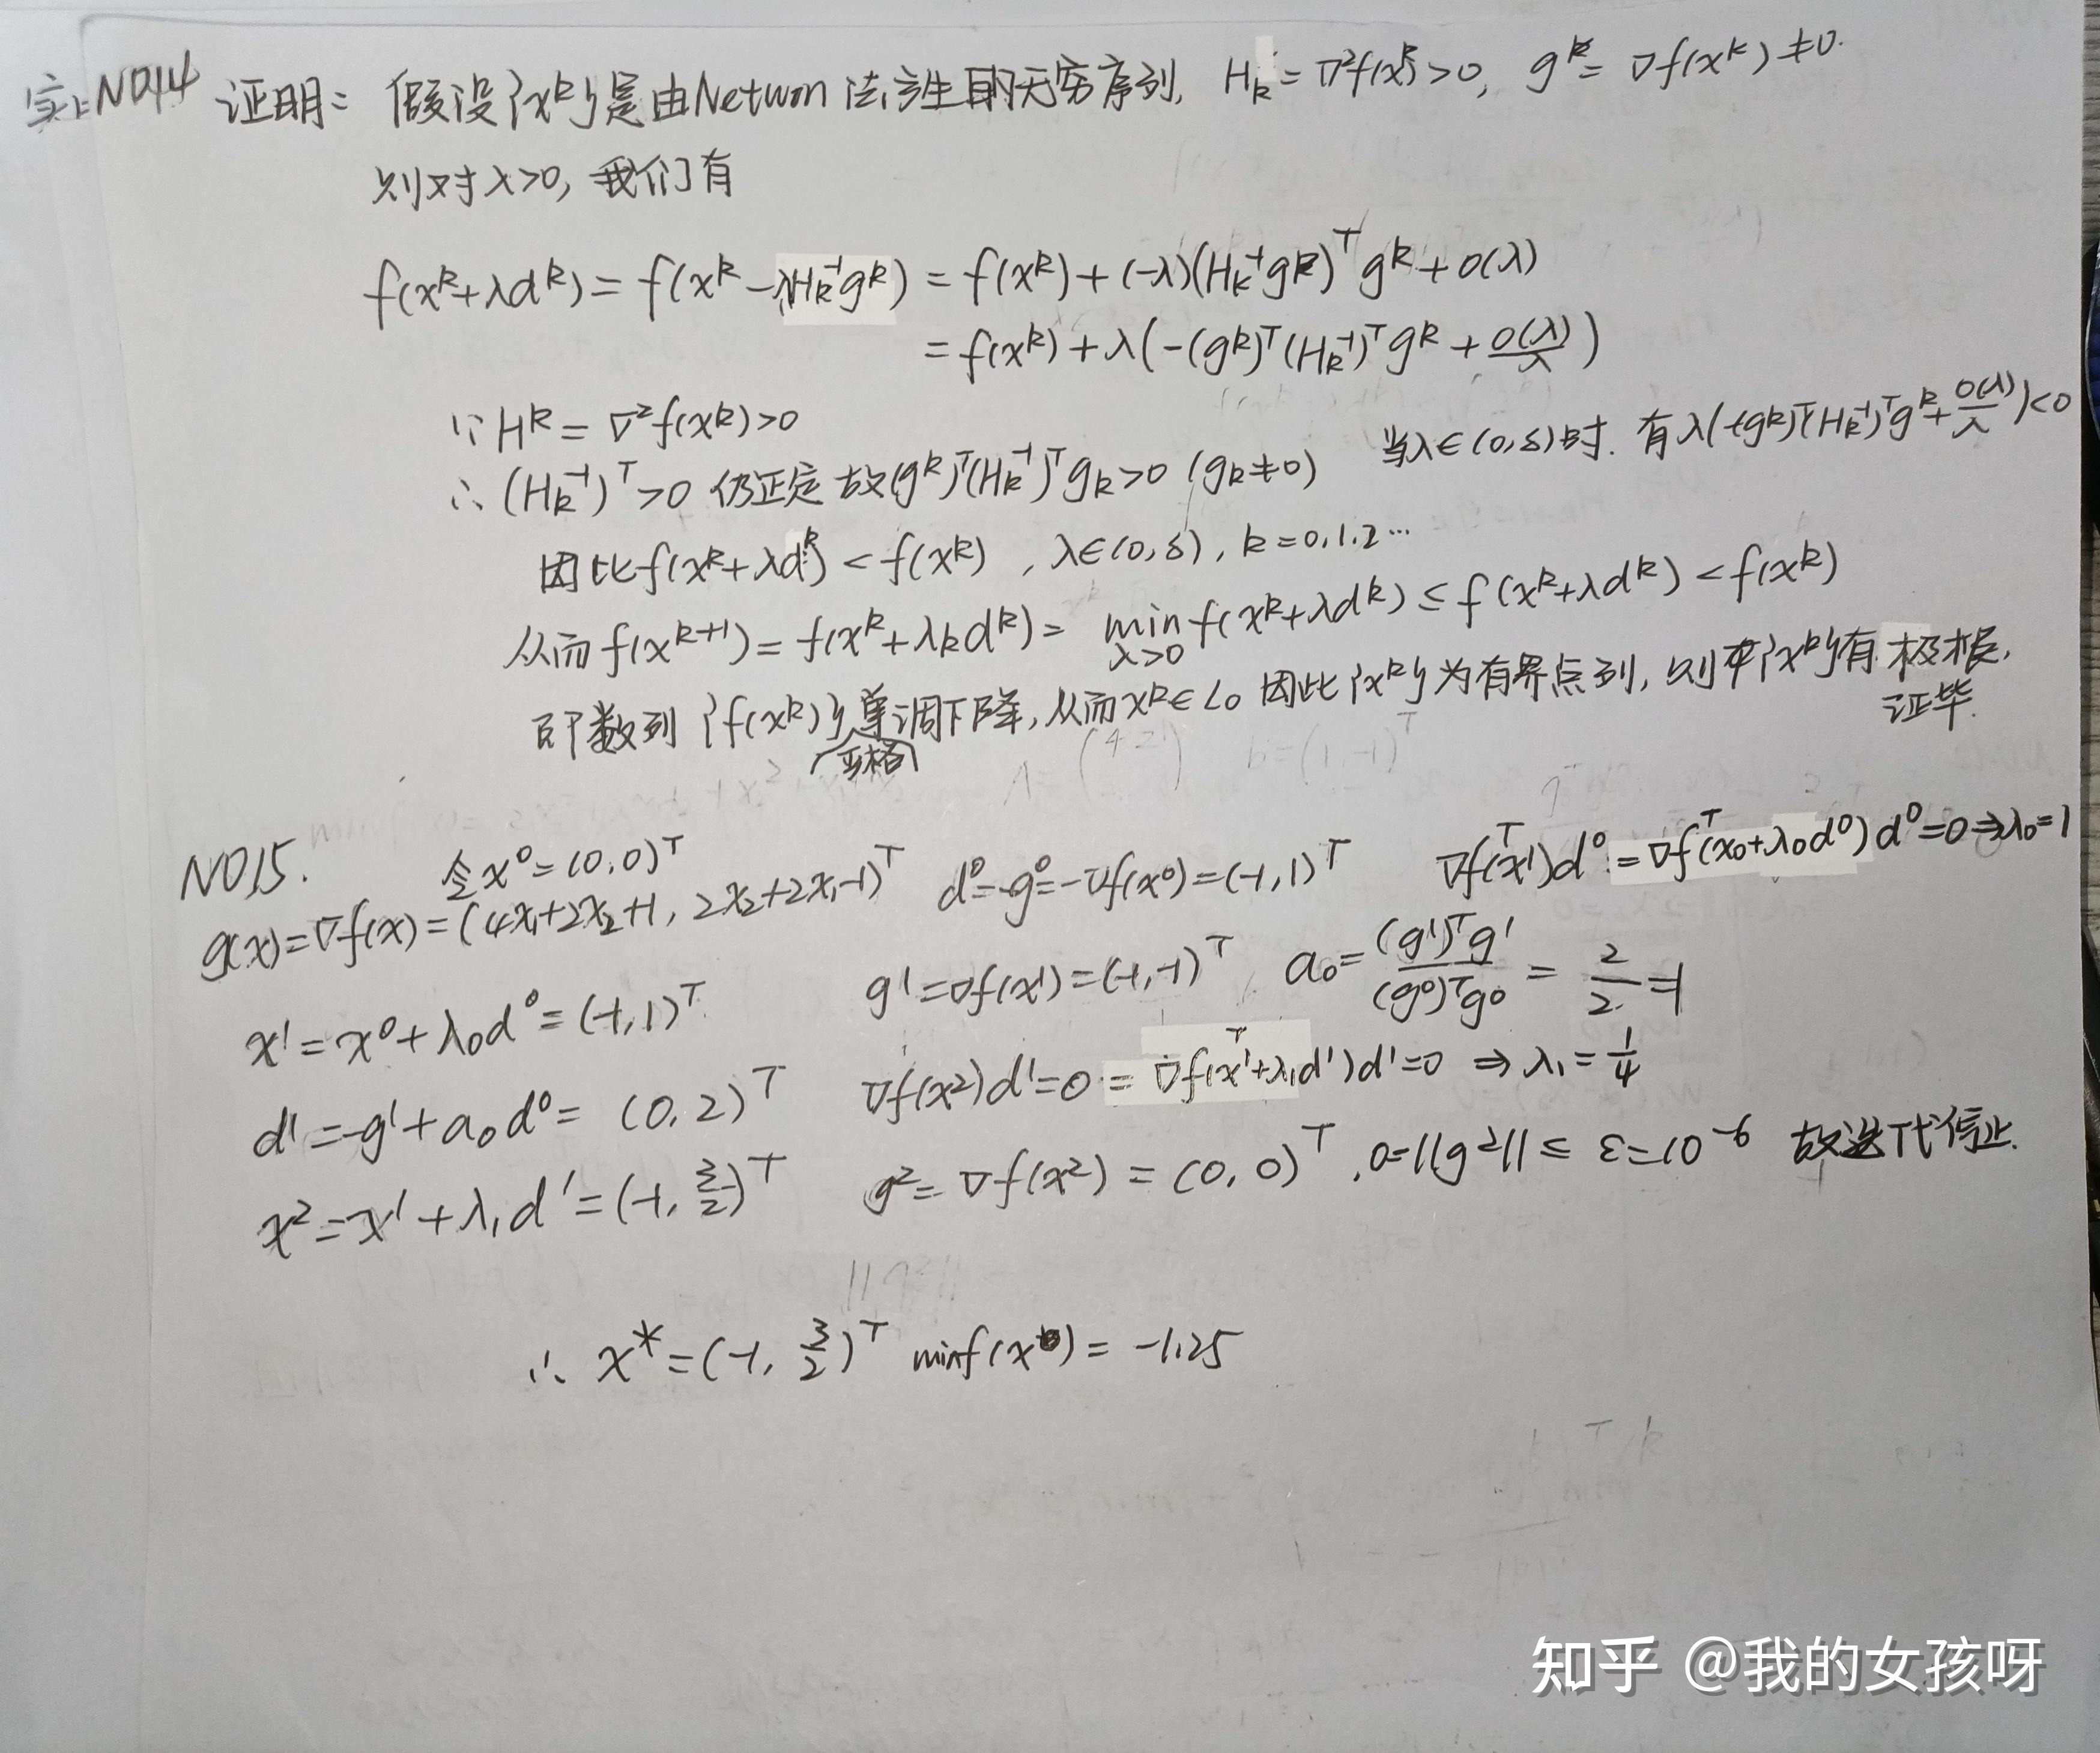 实上NO14 证明：假设{x^k}是由Netwon法产生的无穷序列, H_k=∇²f(x^k)>0, g^k=∇f(x^k)≠0.
则对λ>0, 我们有
f(x^k+λd^k)=f(x^k-λH_k^{-1}g^k)=f(x^k)+(-λ)(H_k^{-1}g^k)^T g^k+o(λ)
=f(x^k)+λ(-(g^k)^T(H_k^{-1})^T g^k+o(λ)/λ)
∵H^k=∇²f(x^k)>0
∴(H_k^{-1})^T>0 仍正定 故(g^k)^T(H_k^{-1})^T g_k>0 (g_k≠0) 当λ∈(0,δ)时. 有λ(-(g^k)^T(H_k^{-1})^T g^k+o(λ)/λ)<0
因此f(x^k+λd^k)<f(x^k), λ∈(0,δ), k=0,1,2…
从而f(x^{k+1})=f(x^k+λ_k d^k)=min_{λ>0} f(x^k+λd^k)≤f(x^k+λd^k)<f(x^k)
即数列{f(x^k)}严格单调下降, 从而x^k∈L_0 因此{x^k}为有界点列, 则{x^k}有极限,
证毕.
NO15. 令x^0=(0,0)^T
g(x)=∇f(x)=(4x_1+2x_2+1, 2x_2+2x_1-1)^T d^0=-g^0=-∇f(x^0)=(-1,1)^T ∇f^T(x^1)d^0=∇f^T(x_0+λ_0d^0)d^0=0⇒λ_0=1
x^1=x^0+λ_0d^0=(-1,1)^T g^1=∇f(x^1)=(-1,-1)^T a_0=(g^1)^T g^1/(g^0)^T g^0=2/2=1
d^1=-g^1+a_0d^0=(0,2)^T ∇f(x^2)d^1=0=∇f^T(x^1+λ_1d^1)d^1=0⇒λ_1=1/4
x^2=x^1+λ_1d^1=(-1,3/2)^T g^2=∇f(x^2)=(0,0)^T, 0=||g^2||≤ε=10^{-6} 故迭代停止.
∴x^*=(-1,3/2)^T minf(x^*)=-1.25
知乎 @我的女孩呀